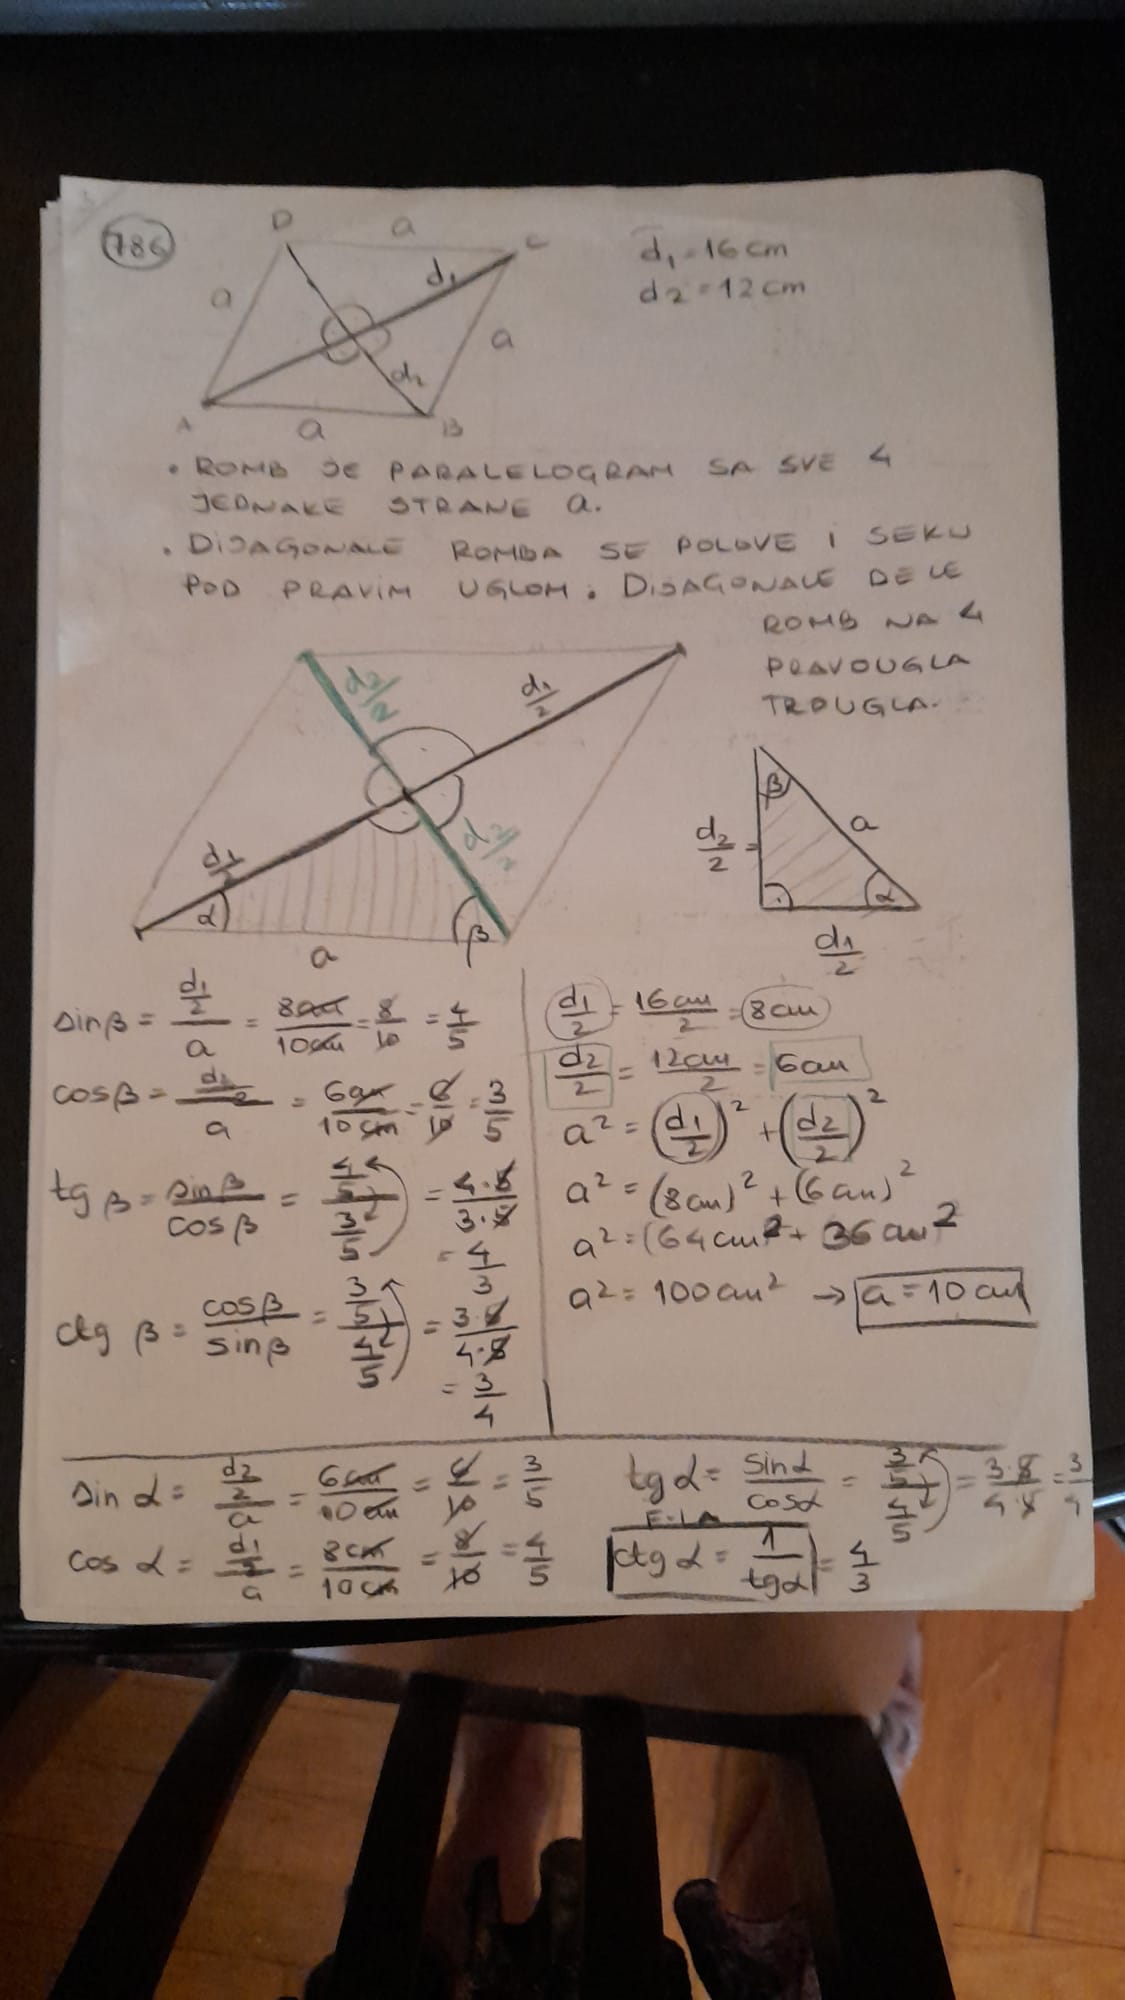 786
D a C
a d₁ a
d₂
A a B
d₁ = 16 cm
d₂ = 12 cm
• ROMB JE PARALELOGRAM SA SVE 4
JEDNAKE STRANE a.
• DIJAGONALE ROMBA SE POLOVE I SEKU
POD PRAVIM UGLOM. DIJAGONALE DELE
ROMB NA 4
PRAVOUGLA
TROUGLA.
d₂/2 d₁/2
d₁/2 d₂/2
α β
a
β
d₂/2 = a
α
d₁/2
sin β = (d₁/2)/a = 8cm/10cm = 8/10 = 4/5
cos β = (d₂/2)/a = 6cm/10cm = 6/10 = 3/5
tg β = sin β/cos β = (4/5)/(3/5) = 4·5/3·5
= 4/3
ctg β = cos β/sin β = (3/5)/(4/5) = 3·5/4·5
= 3/4
d₁/2 = 16cm/2 = 8cm
d₂/2 = 12cm/2 = 6cm
a² = (d₁/2)² + (d₂/2)²
a² = (8cm)² + (6cm)²
a² = (64cm² + 36cm²
a² = 100cm² → a = 10cm
sin α = (d₂/2)/a = 6cm/10cm = 6/10 = 3/5
cos α = (d₁/2)/a = 8cm/10cm = 8/10 = 4/5
tg α = sin α/cos α = (3/5)/(4/5) = 3·5/4·5 = 3/4
ctg α = 1/tg α = 4/3